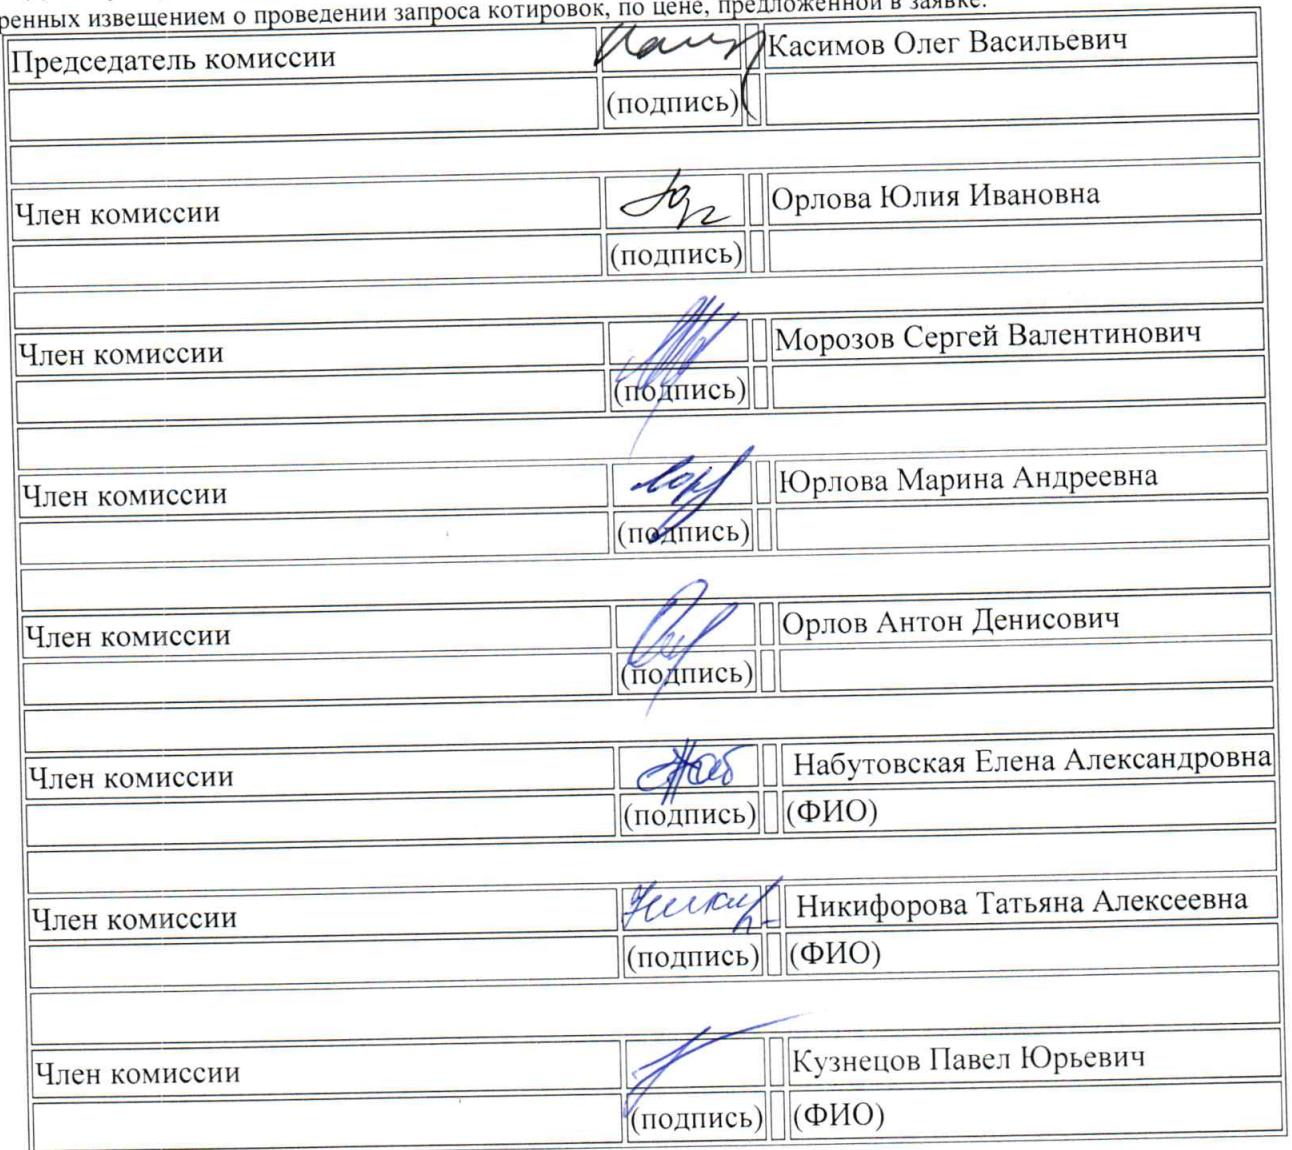 ренных извещением о проведении запроса котировок, по цене, предложенной в заявке.
Председатель комиссии Касимов Олег Васильевич
(подпись)
Член комиссии Орлова Юлия Ивановна
(подпись)
Член комиссии Морозов Сергей Валентинович
(подпись)
Член комиссии Юрлова Марина Андреевна
(подпись)
Член комиссии Орлов Антон Денисович
(подпись)
Член комиссии Набутовская Елена Александровна
(подпись) (ФИО)
Член комиссии Никифорова Татьяна Алексеевна
(подпись) (ФИО)
Член комиссии Кузнецов Павел Юрьевич
(подпись) (ФИО)